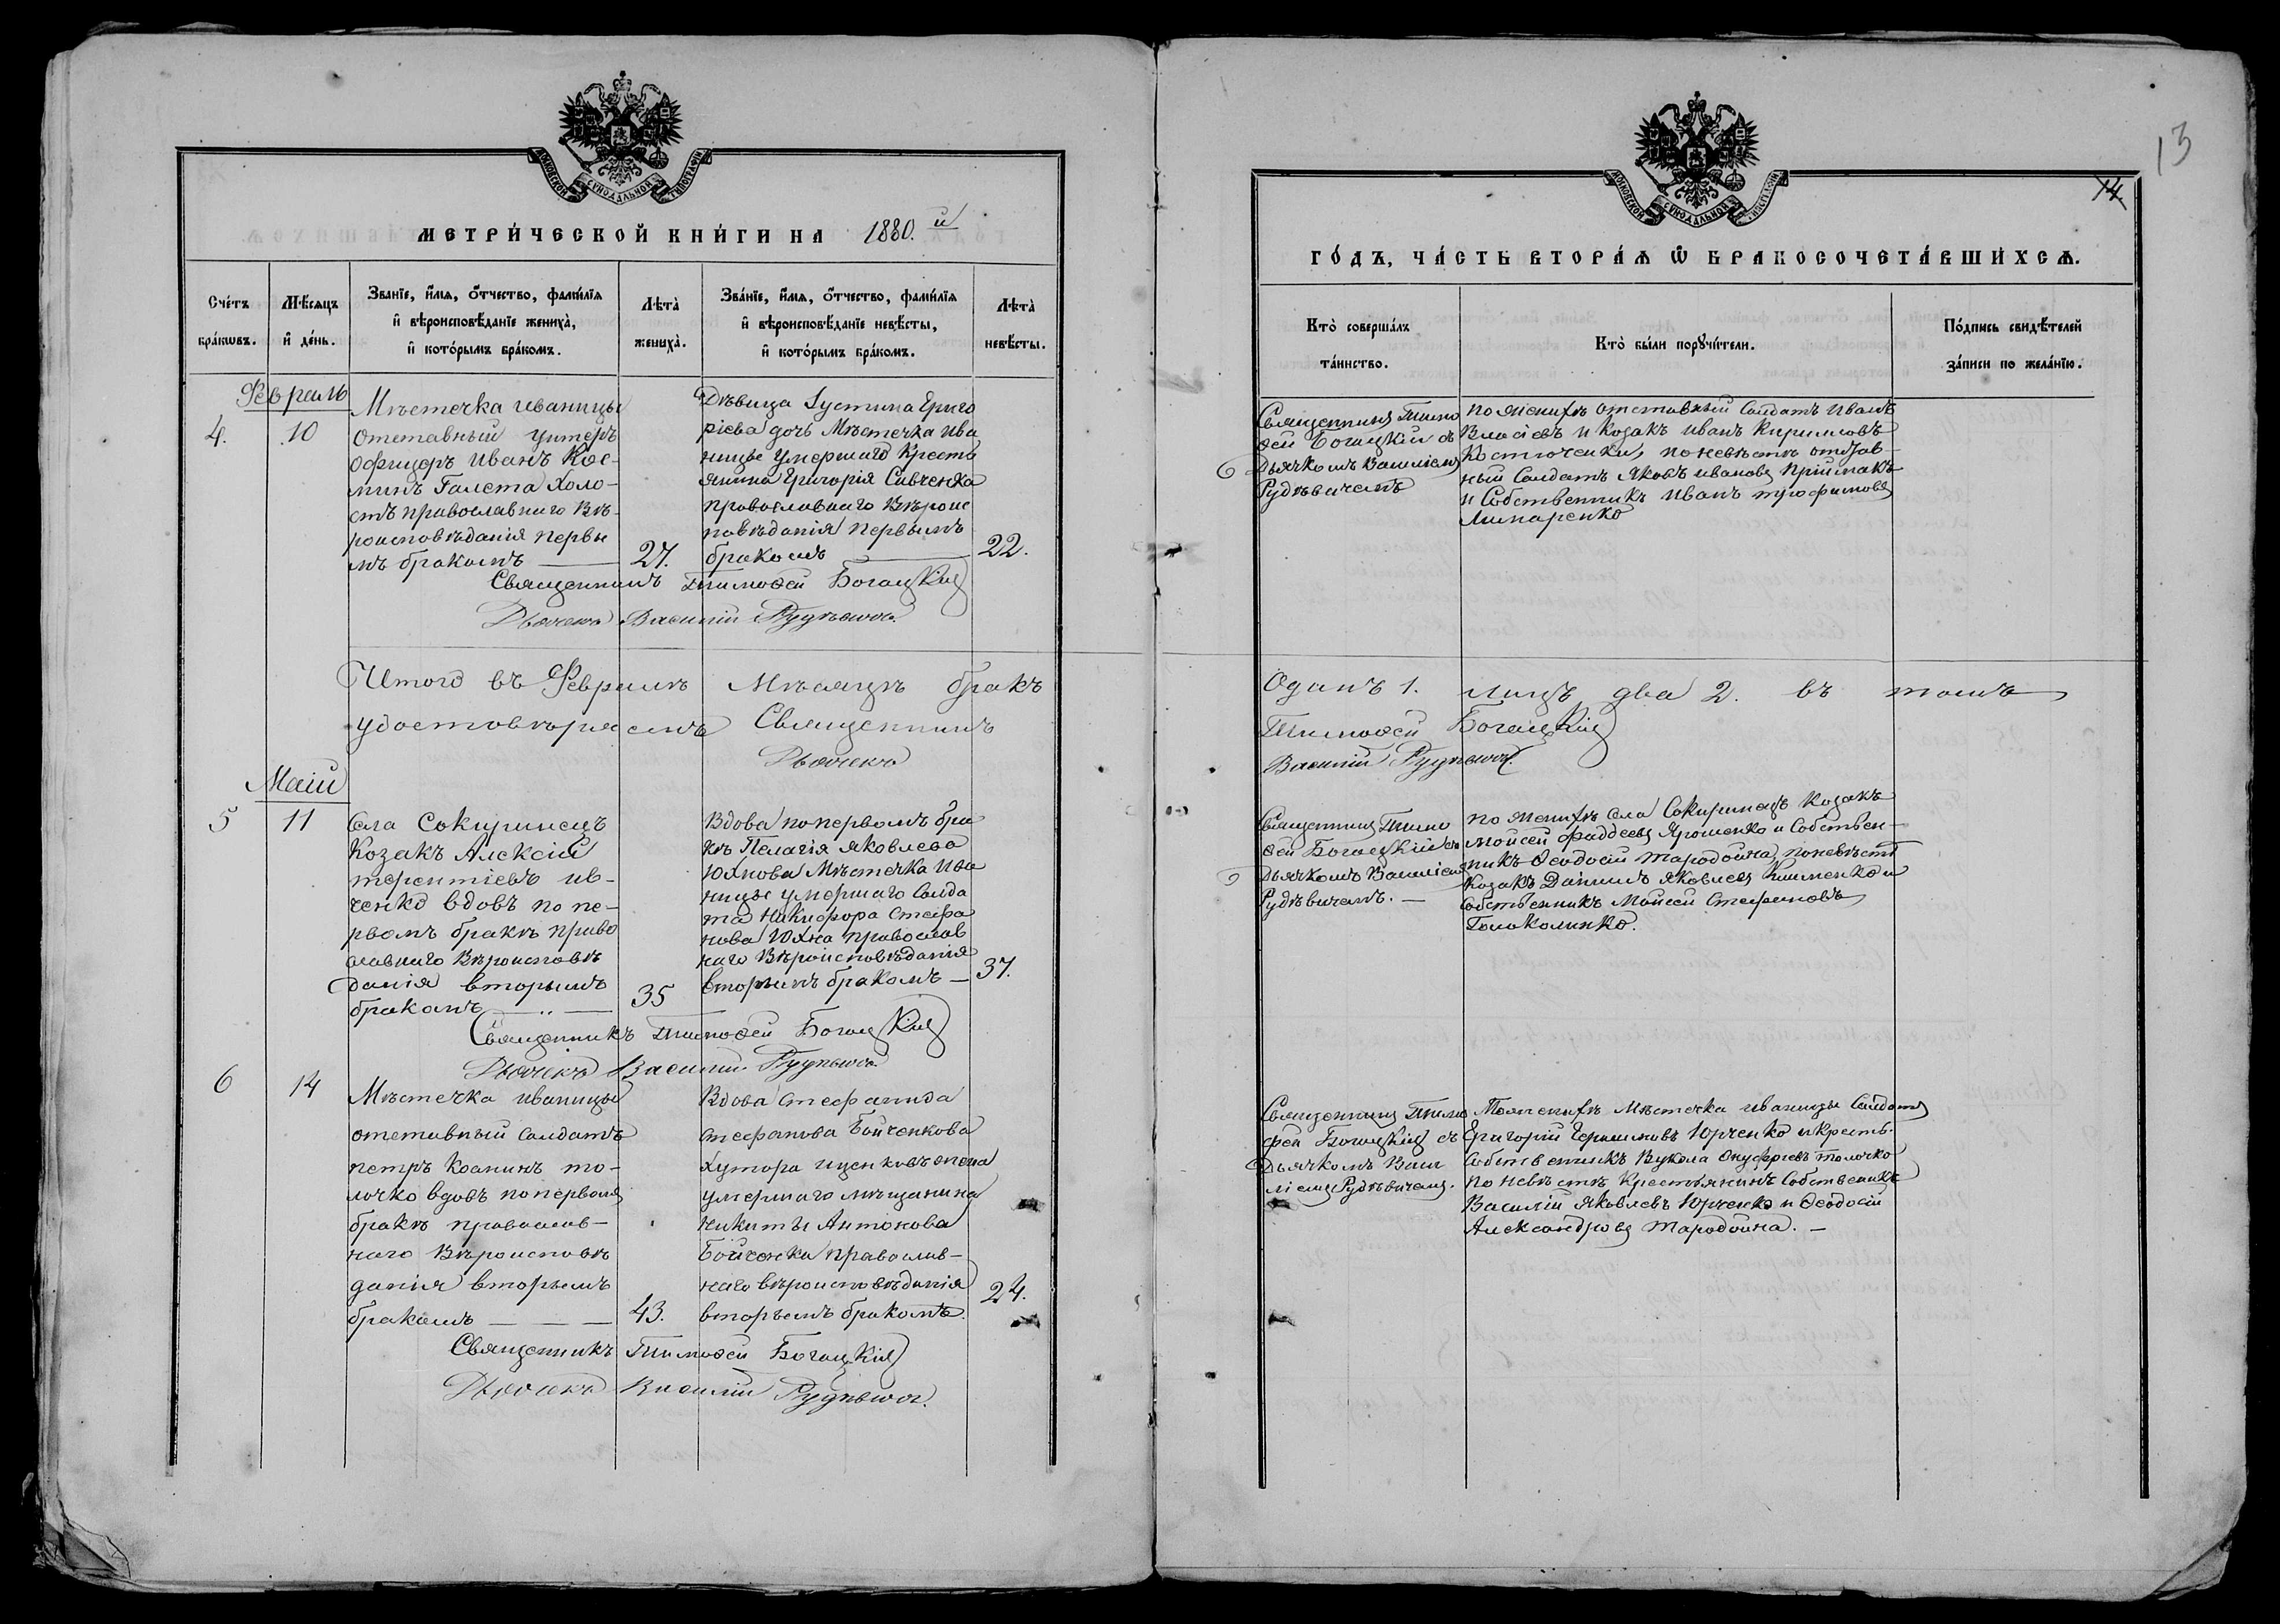 МОСКОВСКОЙ СѴНОДАЛЬНОЙ ТИПОГРАФІИ
МЕТРИ́ЧЕСКОЙ КНИ́ГИ НА 1880.й
Сче́тъ бра́кωвъ.
Мѣ́сяцъ и҆ де́нь.
Зва́нїе, и҆́мѧ, ѻ҆́тчество, фамѝлїѧ
и҆ вѣроисповѣ́данїе жениха̀,
и҆ кото́рымъ бра́комъ.
Лѣта̀ жениха̀.
Зва́нїе, и҆́мѧ, ѻ҆́тчество, фамѝлїѧ
и҆ вѣроисповѣ́данїе невѣ́сты,
и҆ кото́рымъ бра́комъ.
Лѣта̀ невѣ́сты.
Февраль
4. 10
Мѣстечка Иваницы
отставный унтеръ
офицеръ Иванъ Кос-
минъ Галета холо-
стъ православнаго Вѣ-
роисповѣданія первы
мъ бракомъ — 27.
Дѣвица Іустина Григо
ріева дочь Мѣстечка Ива
ницы умершаго Крестя
янина Григорія Савченка
православнаго Вѣроис
повѣданія первымъ
бракомъ — 22.
Священникъ Тимофей Богацкій
Дьячекъ Василій Рудѣвичъ.
Итого въ Февралѣ Мѣсяцѣ бракъ
удостовѣряемъ Священникъ
Дьячекъ
Маій
5 11
Села Сокиринецъ
Козакъ Алексій
терентіевъ ив-
ченко вдовъ по пе-
рвомъ бракѣ право
славнаго Вѣроисповѣ
данія вторымъ
бракомъ — 35
Вдова по первомъ бра
кѣ Пелагія Яковлева
Юхнова Мѣстечка Ива
ницы умершаго Солда
та Никифора Стефа
нова Юхна православ
наго Вѣроисповѣданія
вторымъ бракомъ — 37.
Священникъ Тимофей Богацкій
Дьячекъ Василій Рудѣвичъ
6 14
Мѣстечка Иваницы
отставный солдатъ
петръ то-
лочко вдовъ по первомъ
бракѣ православ-
наго Вѣроисповѣ
данія вторымъ
бракомъ — — — 43.
Вдова Стефанида
Стефанова Бойченкова
Хутора жена
умершаго мѣщанина
Никиты Антонова
Бойченка православ-
наго вѣроисповѣданія
вторымъ бракомъ. 24.
Священникъ Тимофей Богацкій
Дьячекъ Василій Рудѣвичъ.
13
14
МОСКОВСКОЙ СѴНОДАЛЬНОЙ ТИПОГРАФІИ
ГО́ДЪ, ЧА́СТЬ ВТОРА́Ѧ Ѽ БРАКОСОЧЕТА́ВШИХСѦ.
Кто̀ соверша́лъ та́инство.
Кто̀ бы́ли порꙋчи́тели.
По́дпись свидѣ́телей за́писи по жела́нїю.
Священникъ Тимо
фей Богацкій съ
Дьячкомъ Василіемъ
Рудѣвичемъ
по женихѣ отставный Солдатъ Иванъ
Власіевъ и Козакъ Иванъ Кириловъ
Костюченки, по невѣстѣ отстав-
ный Солдатъ Яковъ Ивановъ Пріймакъ
и Собственникъ Иванъ трофимовъ
Линаренко
Одинъ 1. лицъ два 2. въ томъ
Тимофей Богацкій
Василій Рудѣвичъ.
Священникъ Тимо
фей Богацкій съ
Дьячкомъ Василіемъ
Рудѣвичемъ. —
по женихѣ села Сокиринецъ Козакъ
Мойсей фаддеевъ Ярошенко и Собствен-
никъ Феодосій Тародойна, по невѣстѣ
Козакъ Даніилъ Яковлевъ и
Собственникъ Мойсей Стефановъ
Голоколинко.
Священникъ Тимо
фей Богацкій съ
Дьячкомъ Васи
ліемъ Рудѣвичемъ.
По женихѣ Мѣстечка Иваницы Солдатъ
Григорій Герасимовъ Юрченко и Крестъ.
Собственникъ Вукола Онуфріевъ Толочко
по невѣстѣ Крестьянинъ Собственникъ
Василій Яковлевъ Юрченко и Феодосій
Александровъ Тародойна. —